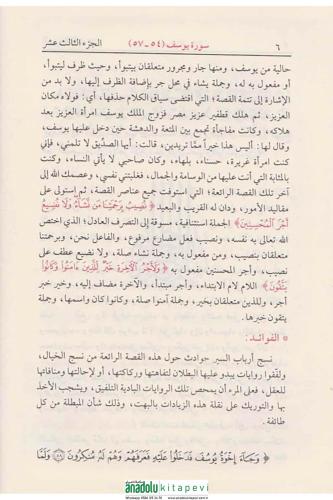 ٦ سورة يوسف (٥٤-٥٧) الجزء الثالث عشر
حالية من يوسف، ومنها جار ومجرور متعلقان بيتبوأ، وحيث ظرف ليتبوأ،
أو مفعول به له، وجملة يشاء في محل جر بإضافة الظرف إليها، ولا بد من
الإشارة إلى تتمة القصة؛ التي اقتضى سياق الكلام حذفها، أي: فولاه مكان
العزيز، ثم هلك قطفير عزيز مصر فزوج الملك يوسف امرأة العزيز بعد
هلاكه، وكانت مفاجأة تجمع بين المتعة والدهشة حين دخل عليها يوسف،
وقال لها: أليس هذا خيراً ممّا تريدين، قالت: أيها الصدّيق لا تلمني، فإني
كنت امرأة غريرة، حسناء، بلهاء، وكان صاحبي لا يأتي النساء، وكنت
بالمثابة التي أنت عليها من الوسامة والجمال، فغلبتني نفسي، وعصمك الله إلى
آخر تلك القصة الرائعة؛ التي استوفت جميع عناصر القصة، ثم استولى على
مقاليد الأمور، ودان له القريب والبعيد ﴿ نُصِيبُ بِرَحْمَتِنَا مَن نَّشَآءُ وَلَا نُضِيعُ
أَجْرَ ٱلْمُحْسِنِينَ ﴾ الجملة استئنافية، مسوقة إلى التصرف العادل؛ الذي اختص
الله تعالى به نفسه، ونصيب فعل مضارع مرفوع، والفاعل نحن، وبرحمتنا
متعلقان بنصيب، ومن مفعول به، وجملة نشاء صلة، ولا نضيع عطف على
نصيب، وأجر المحسنين مفعول به ﴿ وَلَأَجْرُ ٱلْآخِرَةِ خَيْرٌ لِّلَّذِينَ ءَامَنُوا۟ وَكَانُوا۟
يَتَّقُونَ ﴾ اللام لام الابتداء، وأجر مبتدأ، والآخرة مضاف إليه، وخير خبر
أجر، وللذين متعلقان بخير، وجملة آمنوا صلة، وكانوا كان واسمها، وجملة
يتقون خبرها.
* الفوائد:
نسج أرباب السير حوادث حول هذه القصة الرائعة من نسج الخيال،
ولفّقوا روايات يبدو عليها البطلان لتفاهتها وركاكتها، أو لإحالتها ومنافاتها
للعقل، فعلى المرء أن يمحص تلك الروايات البادية التلفيق، ويشجب الأخذ
بها والتوريك على نقلة هذه الزيادات بالبهت، وذلك شأن المبطلة من كل
طائفة.
﴿ وَجَآءَ إِخْوَةُ يُوسُفَ فَدَخَلُوا۟ عَلَيْهِ فَعَرَفَهُمْ وَهُمْ لَهُۥ مُنكِرُونَ ﴿٥٨﴾ وَلَمَّا
anadolukitapevi